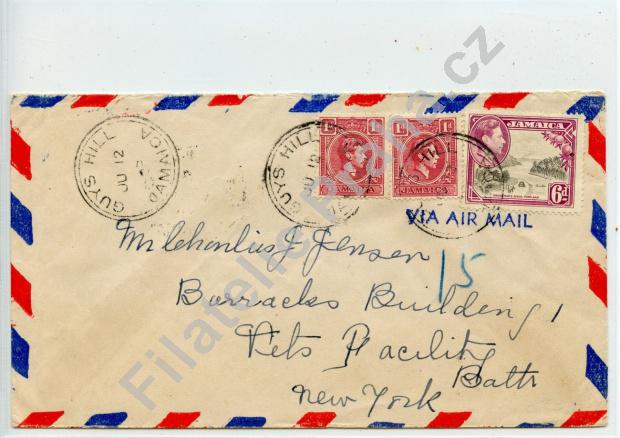 GUYS HILL
JU 12
JAMAICA
GUYS HILL
JU 12
1D
JAMAICA
1D
JAMAICA
JAMAICA
6D
VIA AIR MAIL
Jensen
15
Barracks Building 1
Vets Facility
Bath
New York
Filatelie Praha.cz